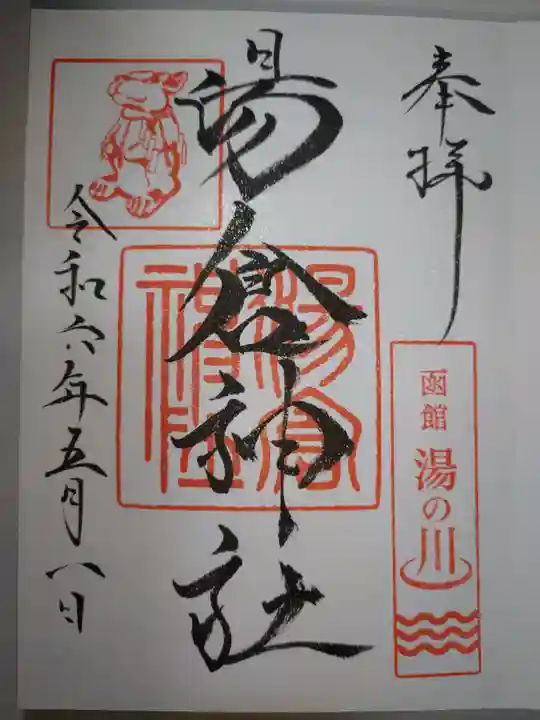 奉拝
函館
湯の川
湯倉神社
湯倉神社
令和六年五月八日